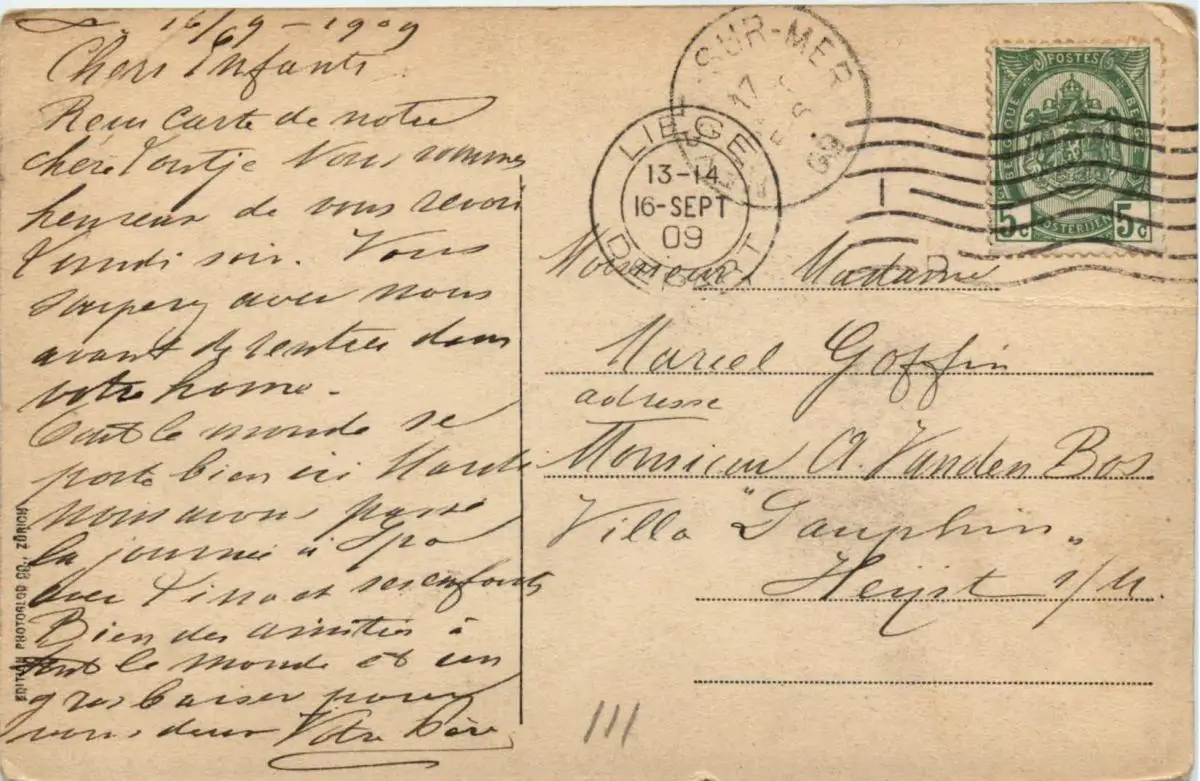 L. 16/9 - 1909
Chers Enfants
Reçu carte de notre
chère Tontje Nous sommes
heureux de vous revoir
Lundi soir. Vous
souperez avec nous
avant de rentrer dans
votre home.
Tout le monde se
porte bien ici Mardi
nous avons passé
la journée à Spa
avec et ses enfants
Bien des amitiés à
tout le monde et un
gros baiser pour
vous deux Votre Père
EDITION PHOTOGLOB CO., ZÜRICH
SUR-MER
17
09
LIEGE
13-14
16-SEPT
09
DEPART
1
POSTES
BELGIQUE BELGIE
5c 5c
POSTERIJEN
Monsieur Madame
Marcel Goffin
adresse
Monsieur A. Vanden Bos
Villa "Dauphin"
Heijst s/M.
111